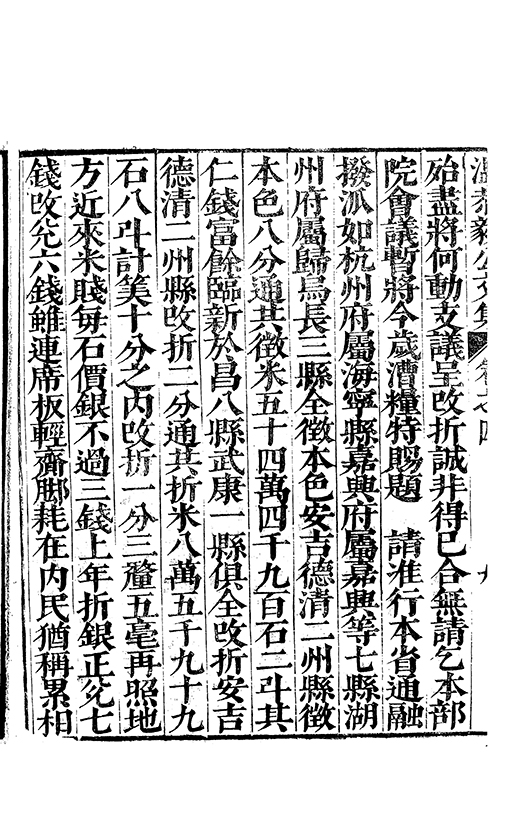 溫恭毅公文集 卷之四 九
殆盡將何動支議呈改折誠非得巳合無請乞本部
院會議暫將今歲漕糧特賜題　請准行本省通融
撥派如杭州府屬海寧縣嘉興府屬嘉興等七縣湖
州府屬歸烏長三縣全徵本色安吉德清二州縣徵
本色八分通共徵米五十四萬四千九百石二斗其
仁錢富餘臨新於昌八縣武康一縣俱全改折安吉
德清二州縣改折二分通其折米八萬五千九十九
石八斗計筭十分之内改折一分三釐五毫再照地
方近來米賤每石價銀不過三錢上年折銀正兊七
錢改兊六錢雖連席板輕齎脚耗在内民猶稱累相